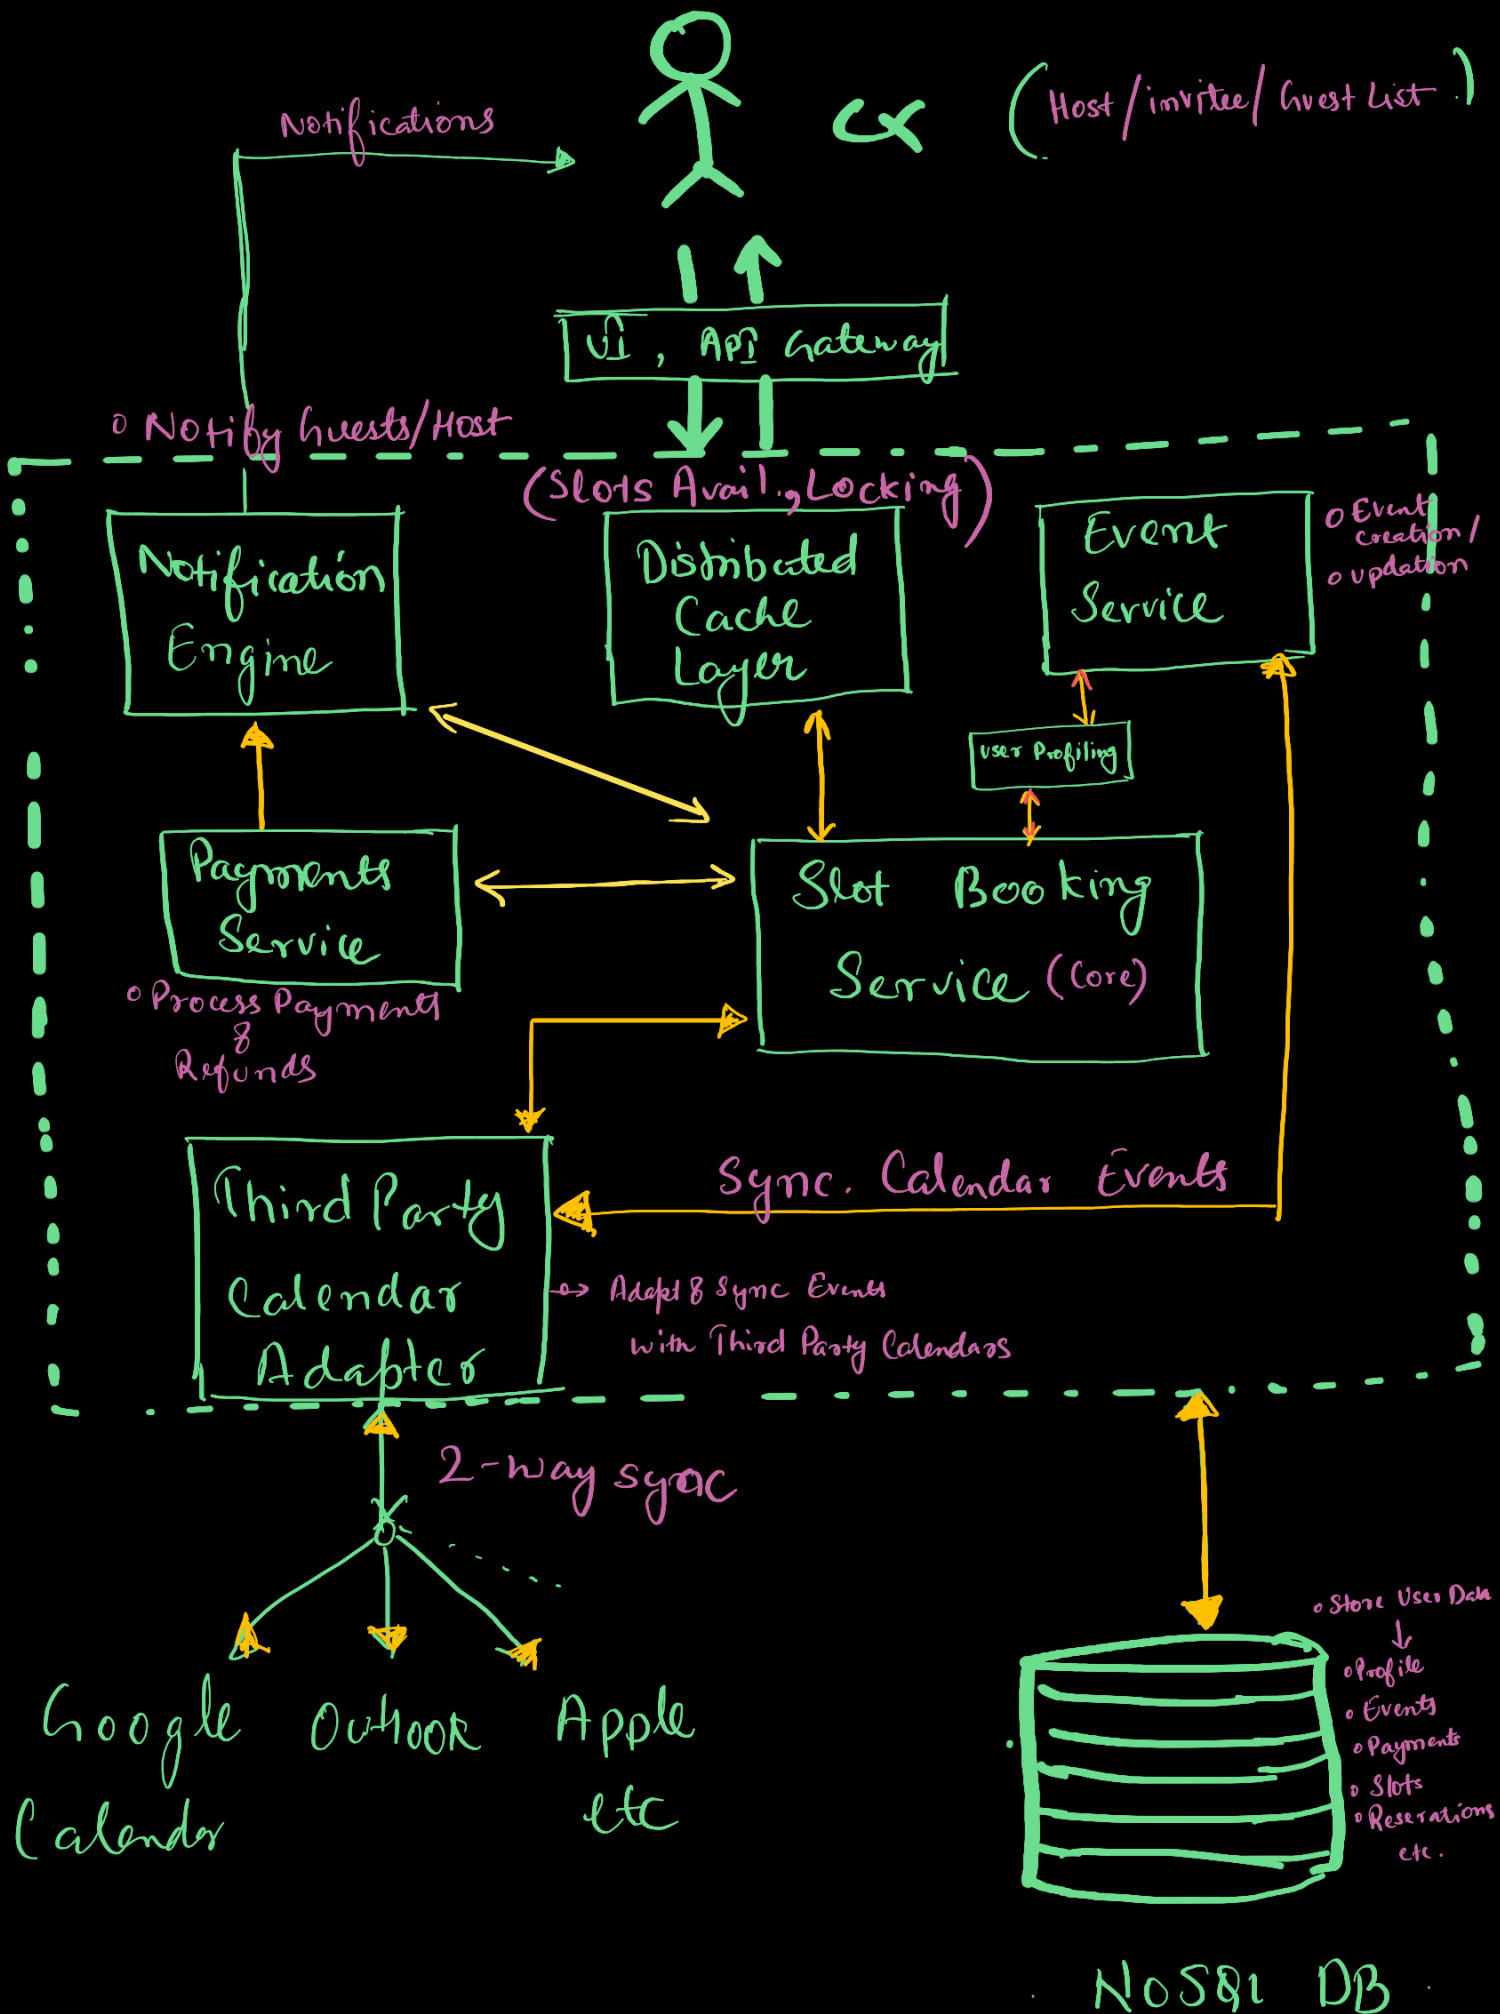 Notifications
cx
(Host/invitee/Guest List.)
UI, API Gateway
o Notify Guests/Host
(Slots Avail., Locking)
Notification
Engine
Distributed
Cache
Layer
Event
Service
o Event
creation/
o updation
User Profiling
Payments
Service
o Process Payments
&
Refunds
Slot Booking
Service (Core)
Third Party
Calendar
Adapter
Sync. Calendar Events
Adapt & Sync Events
with Third Party Calendars
2-way sync
Google
Calender
Outlook
Apple
etc
o Store User Data
o Profile
o Events
o Payments
o Slots
o Reserations
etc.
NoSQL DB